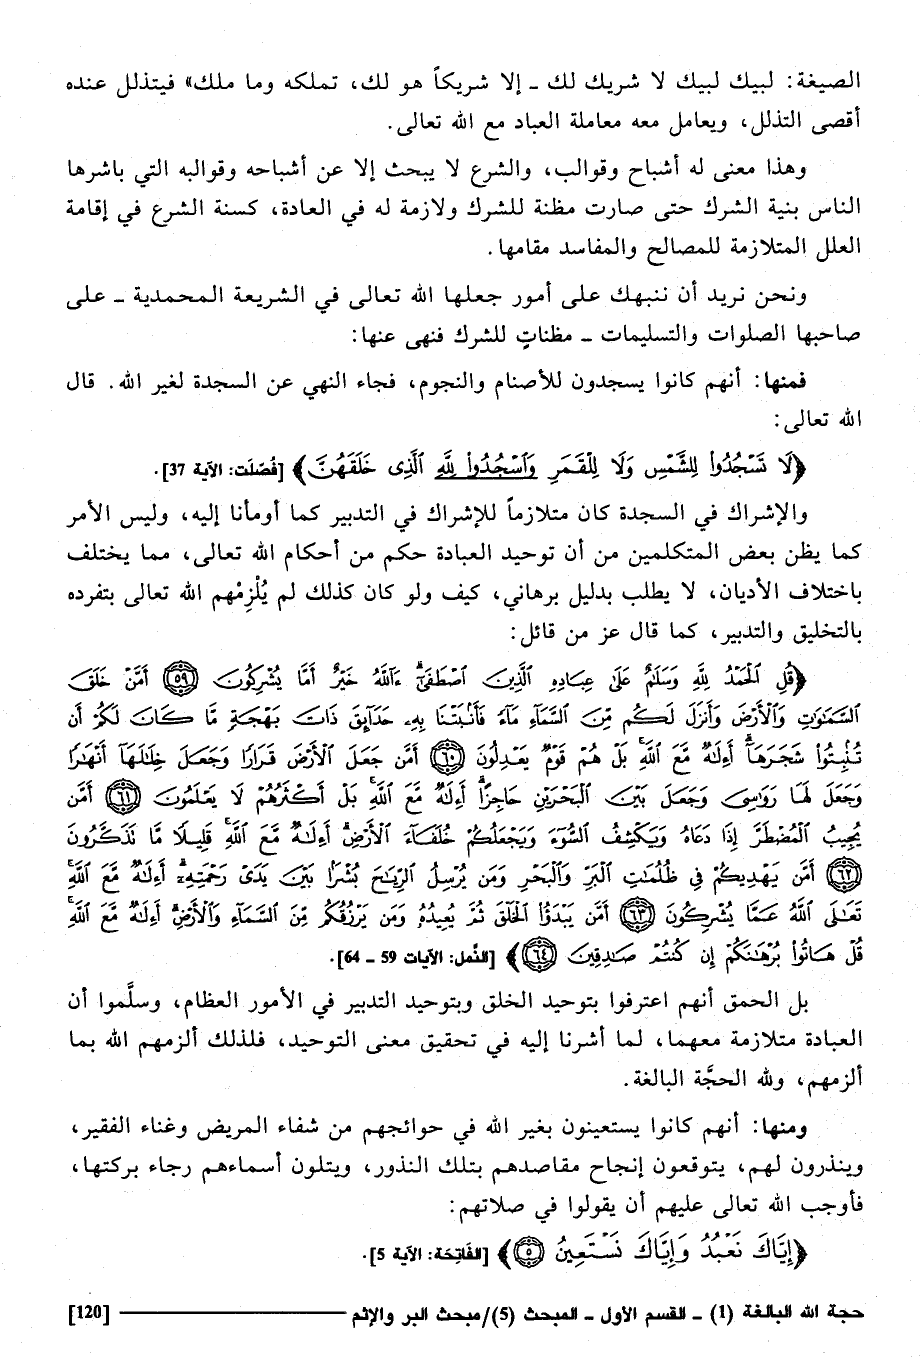 الصيغة: لبيك لبيك لا شريك لك ـ إلا شريكاً هو لك، تملكه وما ملك» فيتذلل عنده
أقصى التذلل، ويعامل معه معاملة العباد مع الله تعالى.
وهذا معنى له أشباح وقوالب، والشرع لا يبحث إلا عن أشباحه وقوالبه التي باشرها
الناس بنية الشرك حتى صارت مظنة للشرك ولازمة له في العادة، كسنة الشرع في إقامة
العلل المتلازمة للمصالح والمفاسد مقامها.
ونحن نريد أن ننبهك على أمور جعلها الله تعالى في الشريعة المحمدية ـ على
صاحبها الصلوات والتسليمات ـ مظناتٍ للشرك فنهى عنها:
فمنها: أنهم كانوا يسجدون للأصنام والنجوم، فجاء النهي عن السجدة لغير الله. قال
الله تعالى:
﴿لَا تَسْجُدُوا۟ لِلشَّمْسِ وَلَا لِلْقَمَرِ وَٱسْجُدُوا۟ لِلَّهِ ٱلَّذِى خَلَقَهُنَّ﴾ [فُصّلَت: الآية 37].
والإشراك في السجدة كان متلازماً للإشراك في التدبير كما أومأنا إليه، وليس الأمر
كما يظن بعض المتكلمين من أن توحيد العبادة حكم من أحكام الله تعالى، مما يختلف
باختلاف الأديان، لا يطلب بدليل برهاني، كيف ولو كان كذلك لم يُلْزِمْهم الله تعالى بتفرده
بالتخليق والتدبير، كما قال عز من قائل:
﴿قُلِ ٱلْحَمْدُ لِلَّهِ وَسَلَٰمٌ عَلَىٰ عِبَادِهِ ٱلَّذِينَ ٱصْطَفَىٰٓ ءَآللَّهُ خَيْرٌ أَمَّا يُشْرِكُونَ ﴿٥٩﴾ أَمَّنْ خَلَقَ
ٱلسَّمَٰوَٰتِ وَٱلْأَرْضَ وَأَنزَلَ لَكُم مِّنَ ٱلسَّمَآءِ مَآءً فَأَنۢبَتْنَا بِهِۦ حَدَآئِقَ ذَاتَ بَهْجَةٍ مَّا كَانَ لَكُمْ أَن
تُنۢبِتُوا۟ شَجَرَهَآ أَءِلَٰهٌ مَّعَ ٱللَّهِ بَلْ هُمْ قَوْمٌ يَعْدِلُونَ ﴿٦٠﴾ أَمَّن جَعَلَ ٱلْأَرْضَ قَرَارًا وَجَعَلَ خِلَٰلَهَآ أَنْهَٰرًا
وَجَعَلَ لَهَا رَوَٰسِىَ وَجَعَلَ بَيْنَ ٱلْبَحْرَيْنِ حَاجِزًا أَءِلَٰهٌ مَّعَ ٱللَّهِ بَلْ أَكْثَرُهُمْ لَا يَعْلَمُونَ ﴿٦١﴾ أَمَّن
يُجِيبُ ٱلْمُضْطَرَّ إِذَا دَعَاهُ وَيَكْشِفُ ٱلسُّوٓءَ وَيَجْعَلُكُمْ خُلَفَآءَ ٱلْأَرْضِ أَءِلَٰهٌ مَّعَ ٱللَّهِ قَلِيلًا مَّا تَذَكَّرُونَ
﴿٦٢﴾ أَمَّن يَهْدِيكُمْ فِى ظُلُمَٰتِ ٱلْبَرِّ وَٱلْبَحْرِ وَمَن يُرْسِلُ ٱلرِّيَٰحَ بُشْرًۢا بَيْنَ يَدَىْ رَحْمَتِهِۦٓ أَءِلَٰهٌ مَّعَ ٱللَّهِ
تَعَٰلَى ٱللَّهُ عَمَّا يُشْرِكُونَ ﴿٦٣﴾ أَمَّن يَبْدَؤُا۟ ٱلْخَلْقَ ثُمَّ يُعِيدُهُۥ وَمَن يَرْزُقُكُم مِّنَ ٱلسَّمَآءِ وَٱلْأَرْضِ أَءِلَٰهٌ مَّعَ ٱللَّهِ
قُلْ هَاتُوا۟ بُرْهَٰنَكُمْ إِن كُنتُمْ صَٰدِقِينَ ﴿٦٤﴾﴾ [النَّمل: الآيات 59 ـ 64].
بل الحمق أنهم اعترفوا بتوحيد الخلق وبتوحيد التدبير في الأمور العظام، وسلَّموا أن
العبادة متلازمة معهما، لما أشرنا إليه في تحقيق معنى التوحيد، فلذلك ألزمهم الله بما
ألزمهم، ولله الحجَّة البالغة.
ومنها: أنهم كانوا يستعينون بغير الله في حوائجهم من شفاء المريض وغناء الفقير،
وينذرون لهم، يتوقعون إنجاح مقاصدهم بتلك النذور، ويتلون أسماءهم رجاء بركتها،
فأوجب الله تعالى عليهم أن يقولوا في صلاتهم:
﴿إِيَّاكَ نَعْبُدُ وَإِيَّاكَ نَسْتَعِينُ ﴿٥﴾﴾ [الفَاتِحَة: الآية 5].
حجة الله البالغة (1) ـ القسم الأول ـ المبحث (5)/مبحث البر والإثم [120]